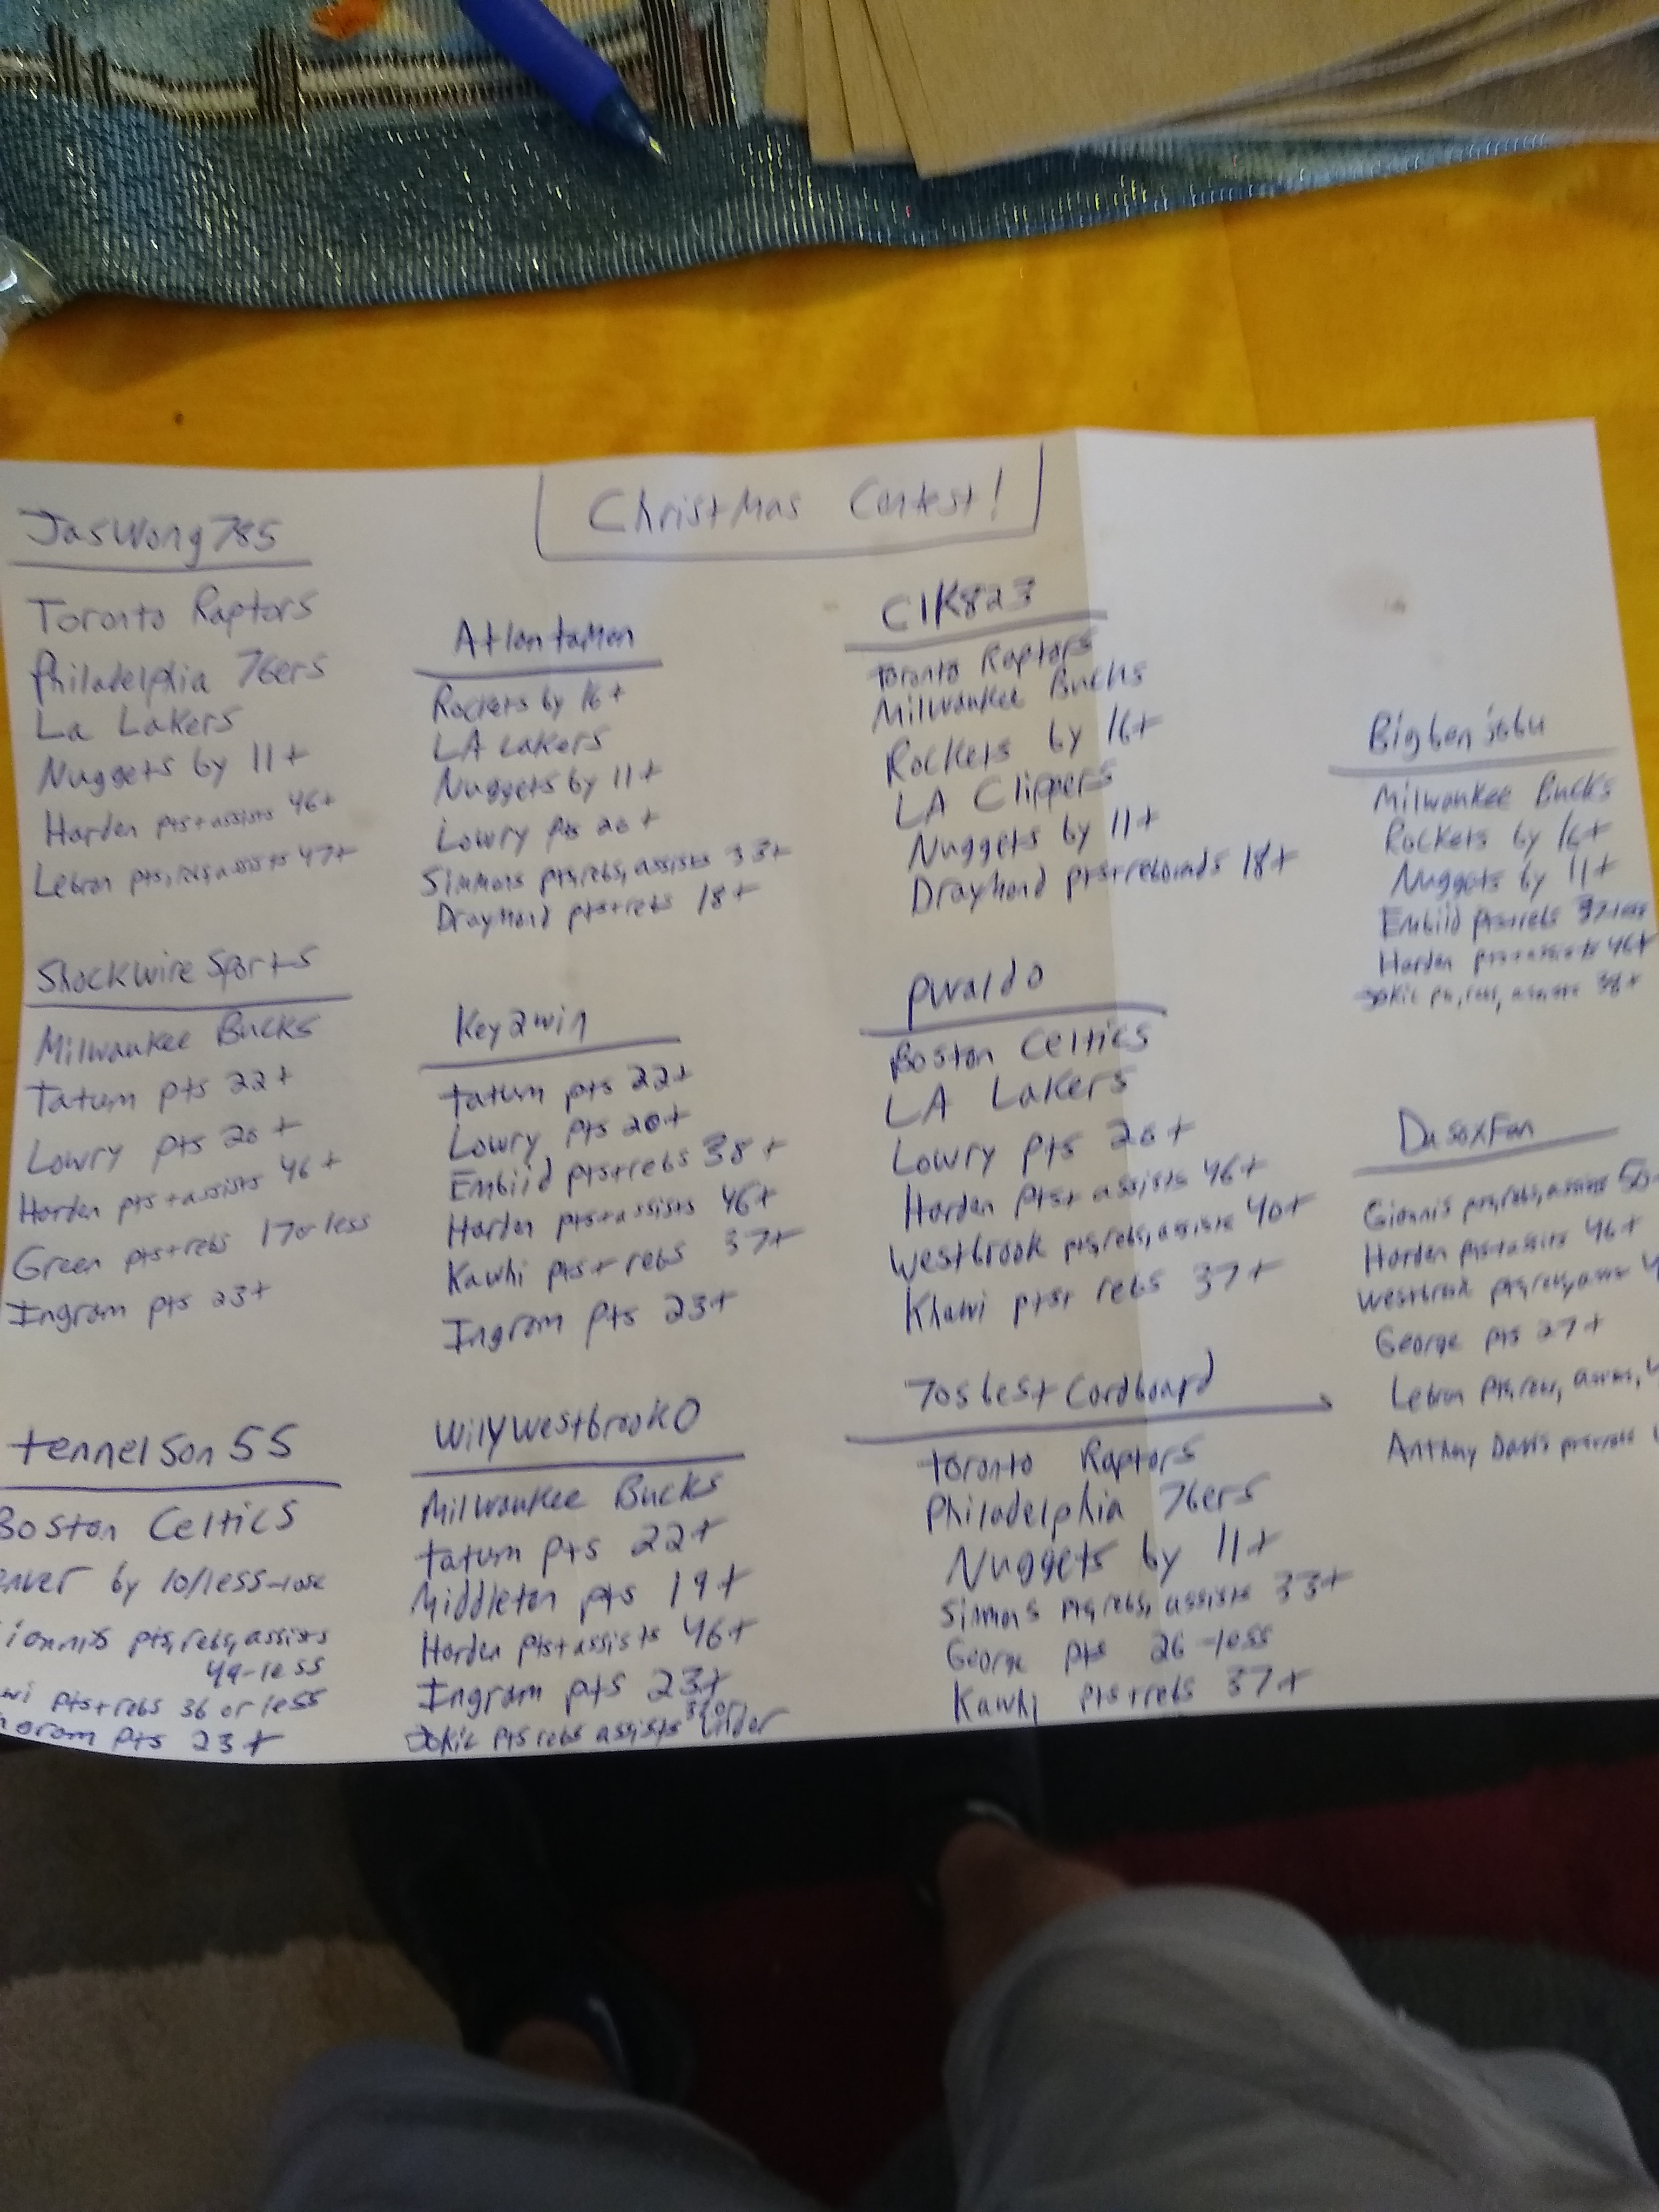 Christmas Contest!
JasWong785
Toronto Raptors
Philadelphia 76ers
La Lakers
Nuggets by 11+
Harden pts+assists 46+
Lebron pts,rebs,assists 47+
Shockwire Sports
Milwaukee Bucks
Tatum pts 22+
Lowry pts 20+
Harden pts+assists 46+
Green pts+rebs 17or less
Ingram pts 23+
tennelson55
Boston Celtics
by 10/less-lose
pts,rebs,assists
49-less
pts+rebs 36 or less
pts 23+
AtlantaMan
Rockets by 16+
LA Lakers
Nuggets by 11+
Lowry pts 20+
Simmons pts,rebs,assists 33+
Draymond pts+rebs 18+
Key2win
Tatum pts 22+
Lowry pts 20+
Embiid pts+rebs 38+
Harden pts+assists 46+
Kawhi pts+rebs 37+
Ingram pts 23+
WilyWestbrook0
Milwaukee Bucks
Tatum pts 22+
Middleton pts 19+
Harden pts+assists 46+
Ingram pts 23+
Jokic pts rebs assists under
C1K823
Toronto Raptors
Milwaukee Bucks
Rockets by 16+
LA Clippers
Nuggets by 11+
Draymond pts+rebounds 18+
pwaldo
Boston Celtics
LA Lakers
Lowry pts 20+
Harden pts+assists 46+
Westbrook pts,rebs,assists 40+
Khawi pts+ rebs 37+
70sbestCardboard
Toronto Raptors
Philadelphia 76ers
Nuggets by 11+
Simmons pts,rebs, assists 33+
George pts 26-less
Kawhi pts+rebs 37+
Milwaukee Bucks
Rockets by 16+
Nuggets by 11+
Embiid pts+rebs
Harden pts+assists 46+
Jokic pts,rebs, assists 38+
DasoxFan
Giannis pts,rebs,assists 50
Harden pts+assists 46+
Westbrook pts,rebs,assists
George pts 27+
Lebron pts,rebs, assists,
Anthony Davis pts+rebs